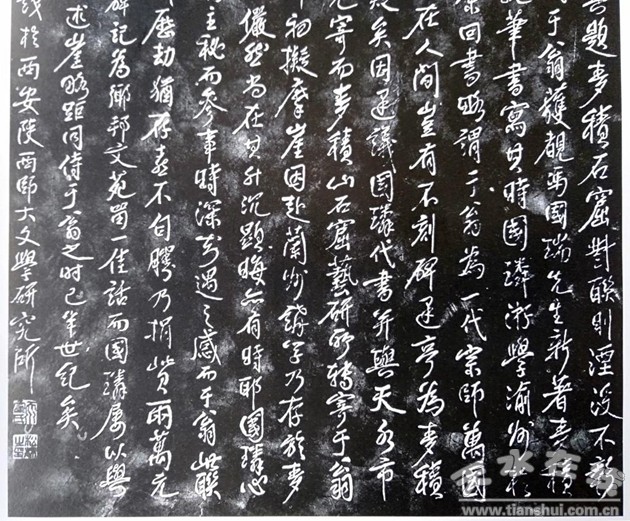 題麥積石窟對聯則湮没不彰
于翁蒦觀馮國瑞先生新著麥積
華書寫其時國璘游學渝州
回書略謂于翁為一代宗師萬國
在人間豈有不刻碑建亭為麥積
矣因建議國璘代書并與天水市
寄而麥積山石窟藝研所轉寄于翁
初擬摩崖因赴蘭州講學乃存於麥
儼然尚在其升沉顯晦亦有時耶國璘心
主秘而參事時深知遇之感而于翁此聯
歷劫猶存喜不自勝乃捐資兩萬元
碑記為鄉邦文苑留一佳話而國璘屬以與
述崖略距同侍于翁之時已半世紀矣
於西安陝西師大文學研究所
天水在線
www.tianshui.com.cn